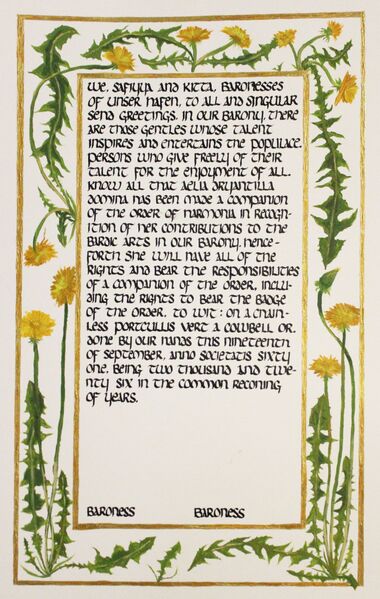 We, Safiyya and Kitta, Baronesses
of Unser Hafen, to all and singular
send greetings. In our Barony, there
are those gentles whose talent
inspires and entertains the populace.
persons who give freely of their
talent for the enjoyment of all.
Know all that Aelia Dryantilla
Domina has been made a companion
of the Order of Harmonia in recogn-
ition of her contributions to the
Bardic Arts in our Barony. Hence-
forth she will have all of the
rights and bear the responsibilities
of a companion of the order, inclu-
ding the rights to bear the badge
of the order, to wit: on a chain-
less portcullis vert a cowbell Or.
Done by our hands this nineteenth
of September, Anno Societatis sixty
one. Being two thousand and twe-
nty six in the common reconing
of years.
Baroness Baroness